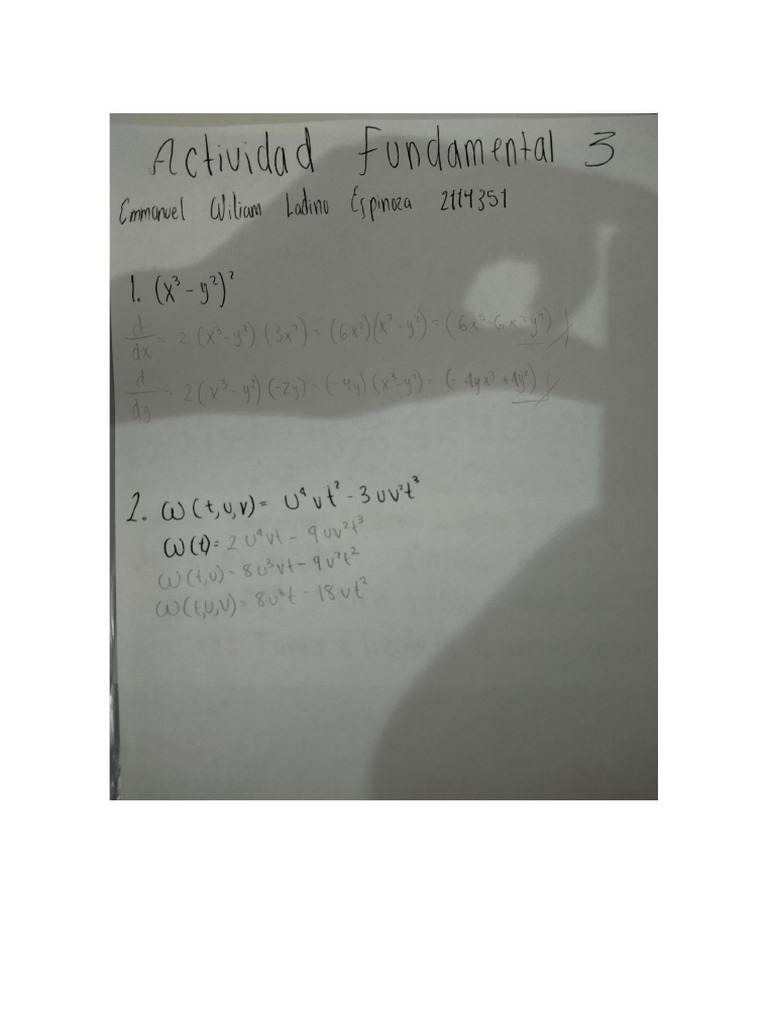 Actividad Fundamental 3
Emmanuel Wiliam Ladino Espinoza 2114351
1. (x³ - y²)²
d/dx = 2(x³-y²)(3x²) = (6x²)(x³-y²) = (6x⁵-6x²y²)
d/dy = 2(x³-y²)(-2y) = (-4y)(x³-y²) = (-4yx³+4y²)
2. ω(t,u,v) = u⁴vt² - 3uv²t³
ω(t) = 2u⁴vt - 9uv²t³
ω(t,u) = 8u³vt - 9v²t²
ω(t,u,v) = 8u³t - 18vt²